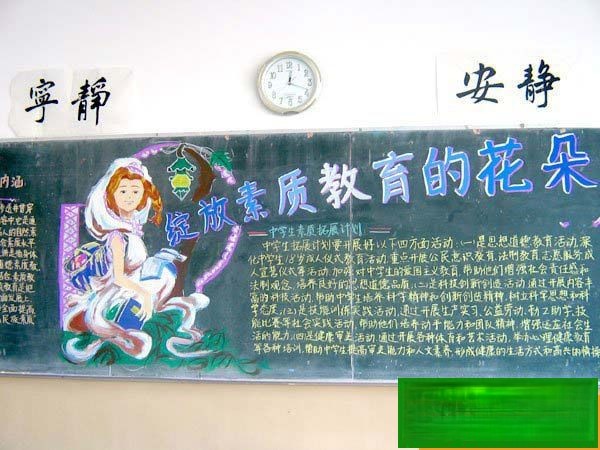 寧靜
安静
绽放素质教育的花朵
内涵
中学生素质拓展计划
中学生拓展计划要开展好以下四方面活动:(一)是思想道德教育活动,深
化中学生18岁成人仪式教育活动,重点开展公民意识教育,法制教育志愿服务成
人宣誓仪式等活动,加强对中学生的爱国主义教育,帮助他们增强社会责任感和
法制观念,培养良好的思想道德品质,(二)是科技创新创造活动,通过开展内容丰
富的科技活动,帮助中学生培养科学精神和创新创造精神,树立科学思想和科
学态度,(三)是技能训练实践活动,通过开展生产实习,公益劳动,勤工助学,技
能比赛等社会实践活动,帮助他们培养动手能力和团队精神,增强适应社会生
活的能力,(四)是健康审美活动,通过开展各种体育和艺术活动,举办心理健康教育
等各种培训,帮助中学生提高审美能力和人文素养,形成健康的生活方式和高尚的情操